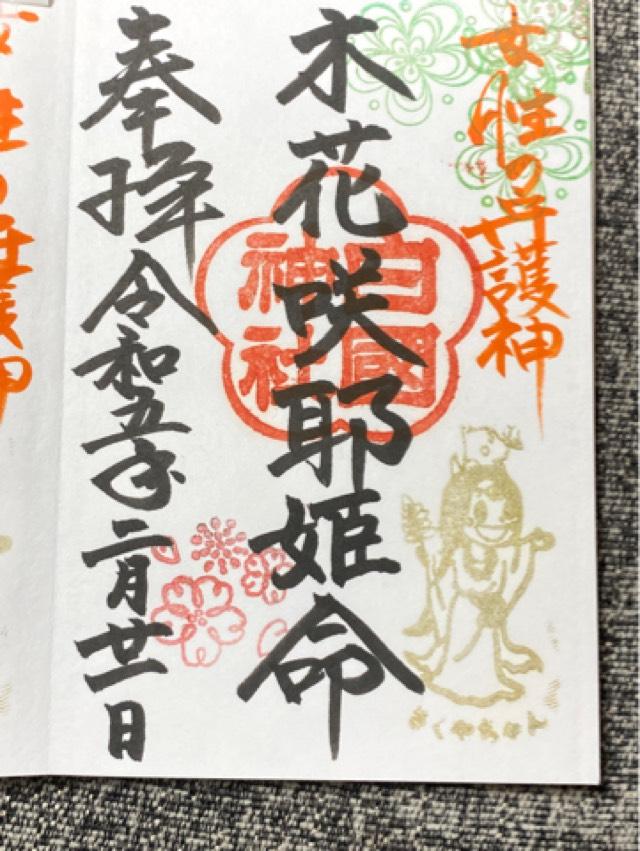 女性の守護神
木花咲耶姫命
白國
神社
奉拝
令和五年二月廿一日
さくやちゃん